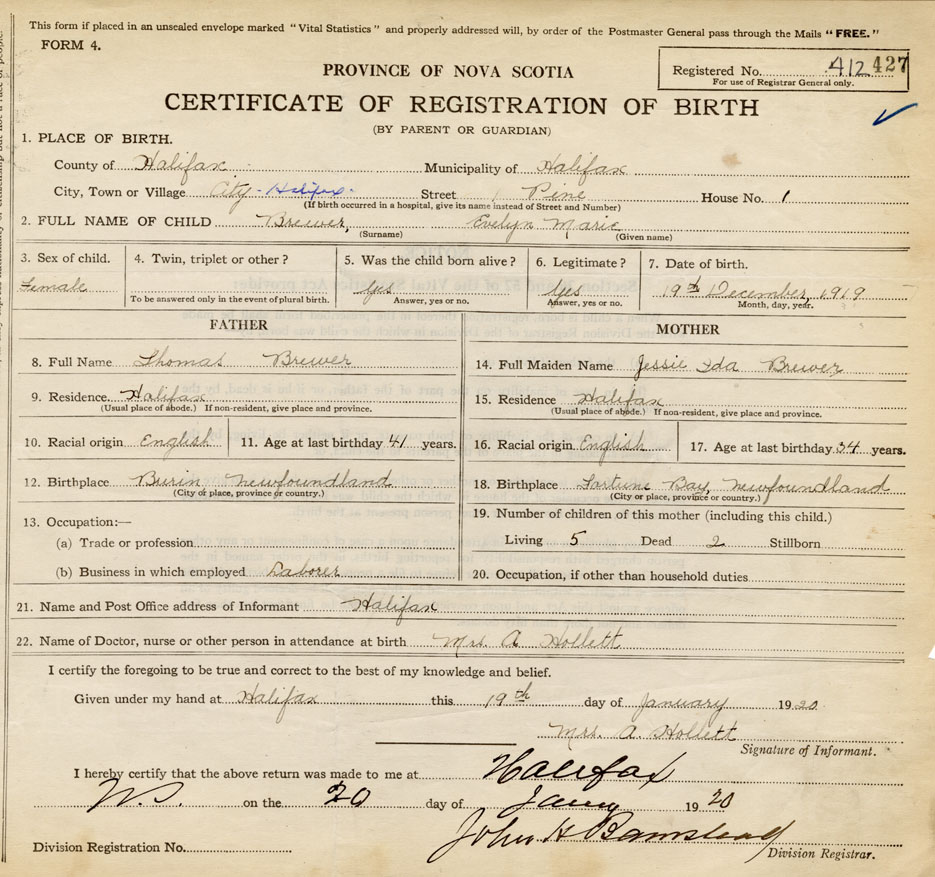 This form if placed in an unsealed envelope marked "Vital Statistics" and properly addressed will, by order of the Postmaster General pass through the Mails "FREE."
FORM 4.
Registered No. 412 427
For use of Registrar General only.
PROVINCE OF NOVA SCOTIA
CERTIFICATE OF REGISTRATION OF BIRTH
(BY PARENT OR GUARDIAN)
1. PLACE OF BIRTH.
County of Halifax Municipality of Halifax
City, Town or Village City - Halifax Street Pine House No. 1
(If birth occurred in a hospital, give its name instead of Street and Number)
2. FULL NAME OF CHILD Brewer, Evelyn Marie
(Surname) (Given name)
3. Sex of child. 4. Twin, triplet or other? 5. Was the child born alive? 6. Legitimate? 7. Date of birth.
Female Yes Yes 19th December, 1919
To be answered only in the event of plural birth. Answer, yes or no. Answer, yes or no. Month, day, year.
FATHER MOTHER
8. Full Name Thomas Brewer 14. Full Maiden Name Jessie Ida Brewer
9. Residence Halifax 15. Residence Halifax
(Usual place of abode.) If non-resident, give place and province. (Usual place of abode.) If non-resident, give place and province.
10. Racial origin English 11. Age at last birthday 41 years. 16. Racial origin English 17. Age at last birthday 34 years.
12. Birthplace Burin Newfoundland 18. Birthplace Fortune Bay, Newfoundland
(City or place, province or country.) (City or place, province or country.)
13. Occupation:— 19. Number of children of this mother (including this child.)
(a) Trade or profession Living 5 Dead 2 Stillborn
(b) Business in which employed Laborer 20. Occupation, if other than household duties
21. Name and Post Office address of Informant Halifax
22. Name of Doctor, nurse or other person in attendance at birth Mrs. A Hollett
I certify the foregoing to be true and correct to the best of my knowledge and belief.
Given under my hand at Halifax this 19th day of January 1920
Mrs. A. Hollett
Signature of Informant.
I hereby certify that the above return was made to me at Halifax
N.S. on the 20 day of Jany 1920
John H Barnstead
Division Registration No. Division Registrar.